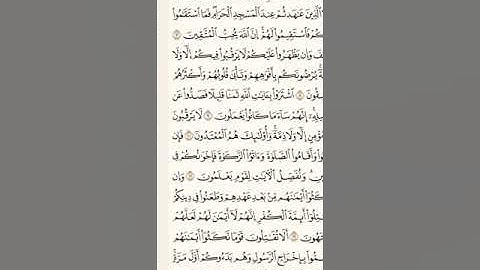 الَّذِينَ عَٰهَدتُّمْ عِندَ ٱلْمَسْجِدِ ٱلْحَرَامِ فَمَا ٱسْتَقَٰمُوا۟
لَكُمْ فَٱسْتَقِيمُوا۟ لَهُمْ إِنَّ ٱللَّهَ يُحِبُّ ٱلْمُتَّقِينَ
وَإِن يَظْهَرُوا۟ عَلَيْكُمْ لَا يَرْقُبُوا۟ فِيكُمْ إِلًّا وَلَا
يُرْضُونَكُم بِأَفْوَٰهِهِمْ وَتَأْبَىٰ قُلُوبُهُمْ وَأَكْثَرُهُمْ
ٱشْتَرَوْا۟ بِـَٔايَٰتِ ٱللَّهِ ثَمَنًا قَلِيلًا فَصَدُّوا۟ عَن
إِنَّهُمْ سَآءَ مَا كَانُوا۟ يَعْمَلُونَ لَا يَرْقُبُونَ
مُؤْمِنٍ إِلًّا وَلَا ذِمَّةً وَأُو۟لَٰٓئِكَ هُمُ ٱلْمُعْتَدُونَ فَإِن
وَأَقَامُوا۟ ٱلصَّلَوٰةَ وَءَاتَوُا۟ ٱلزَّكَوٰةَ فَإِخْوَٰنُكُمْ فِى
وَنُفَصِّلُ ٱلْـَٔايَٰتِ لِقَوْمٍ يَعْلَمُونَ وَإِن
نَّكَثُوٓا۟ أَيْمَٰنَهُم مِّنۢ بَعْدِ عَهْدِهِمْ وَطَعَنُوا۟ فِى دِينِكُمْ
أَئِمَّةَ ٱلْكُفْرِ إِنَّهُمْ لَآ أَيْمَٰنَ لَهُمْ لَعَلَّهُمْ
أَلَا تُقَٰتِلُونَ قَوْمًا نَّكَثُوٓا۟ أَيْمَٰنَهُمْ
بِإِخْرَاجِ ٱلرَّسُولِ وَهُم بَدَءُوكُمْ أَوَّلَ مَرَّةٍ